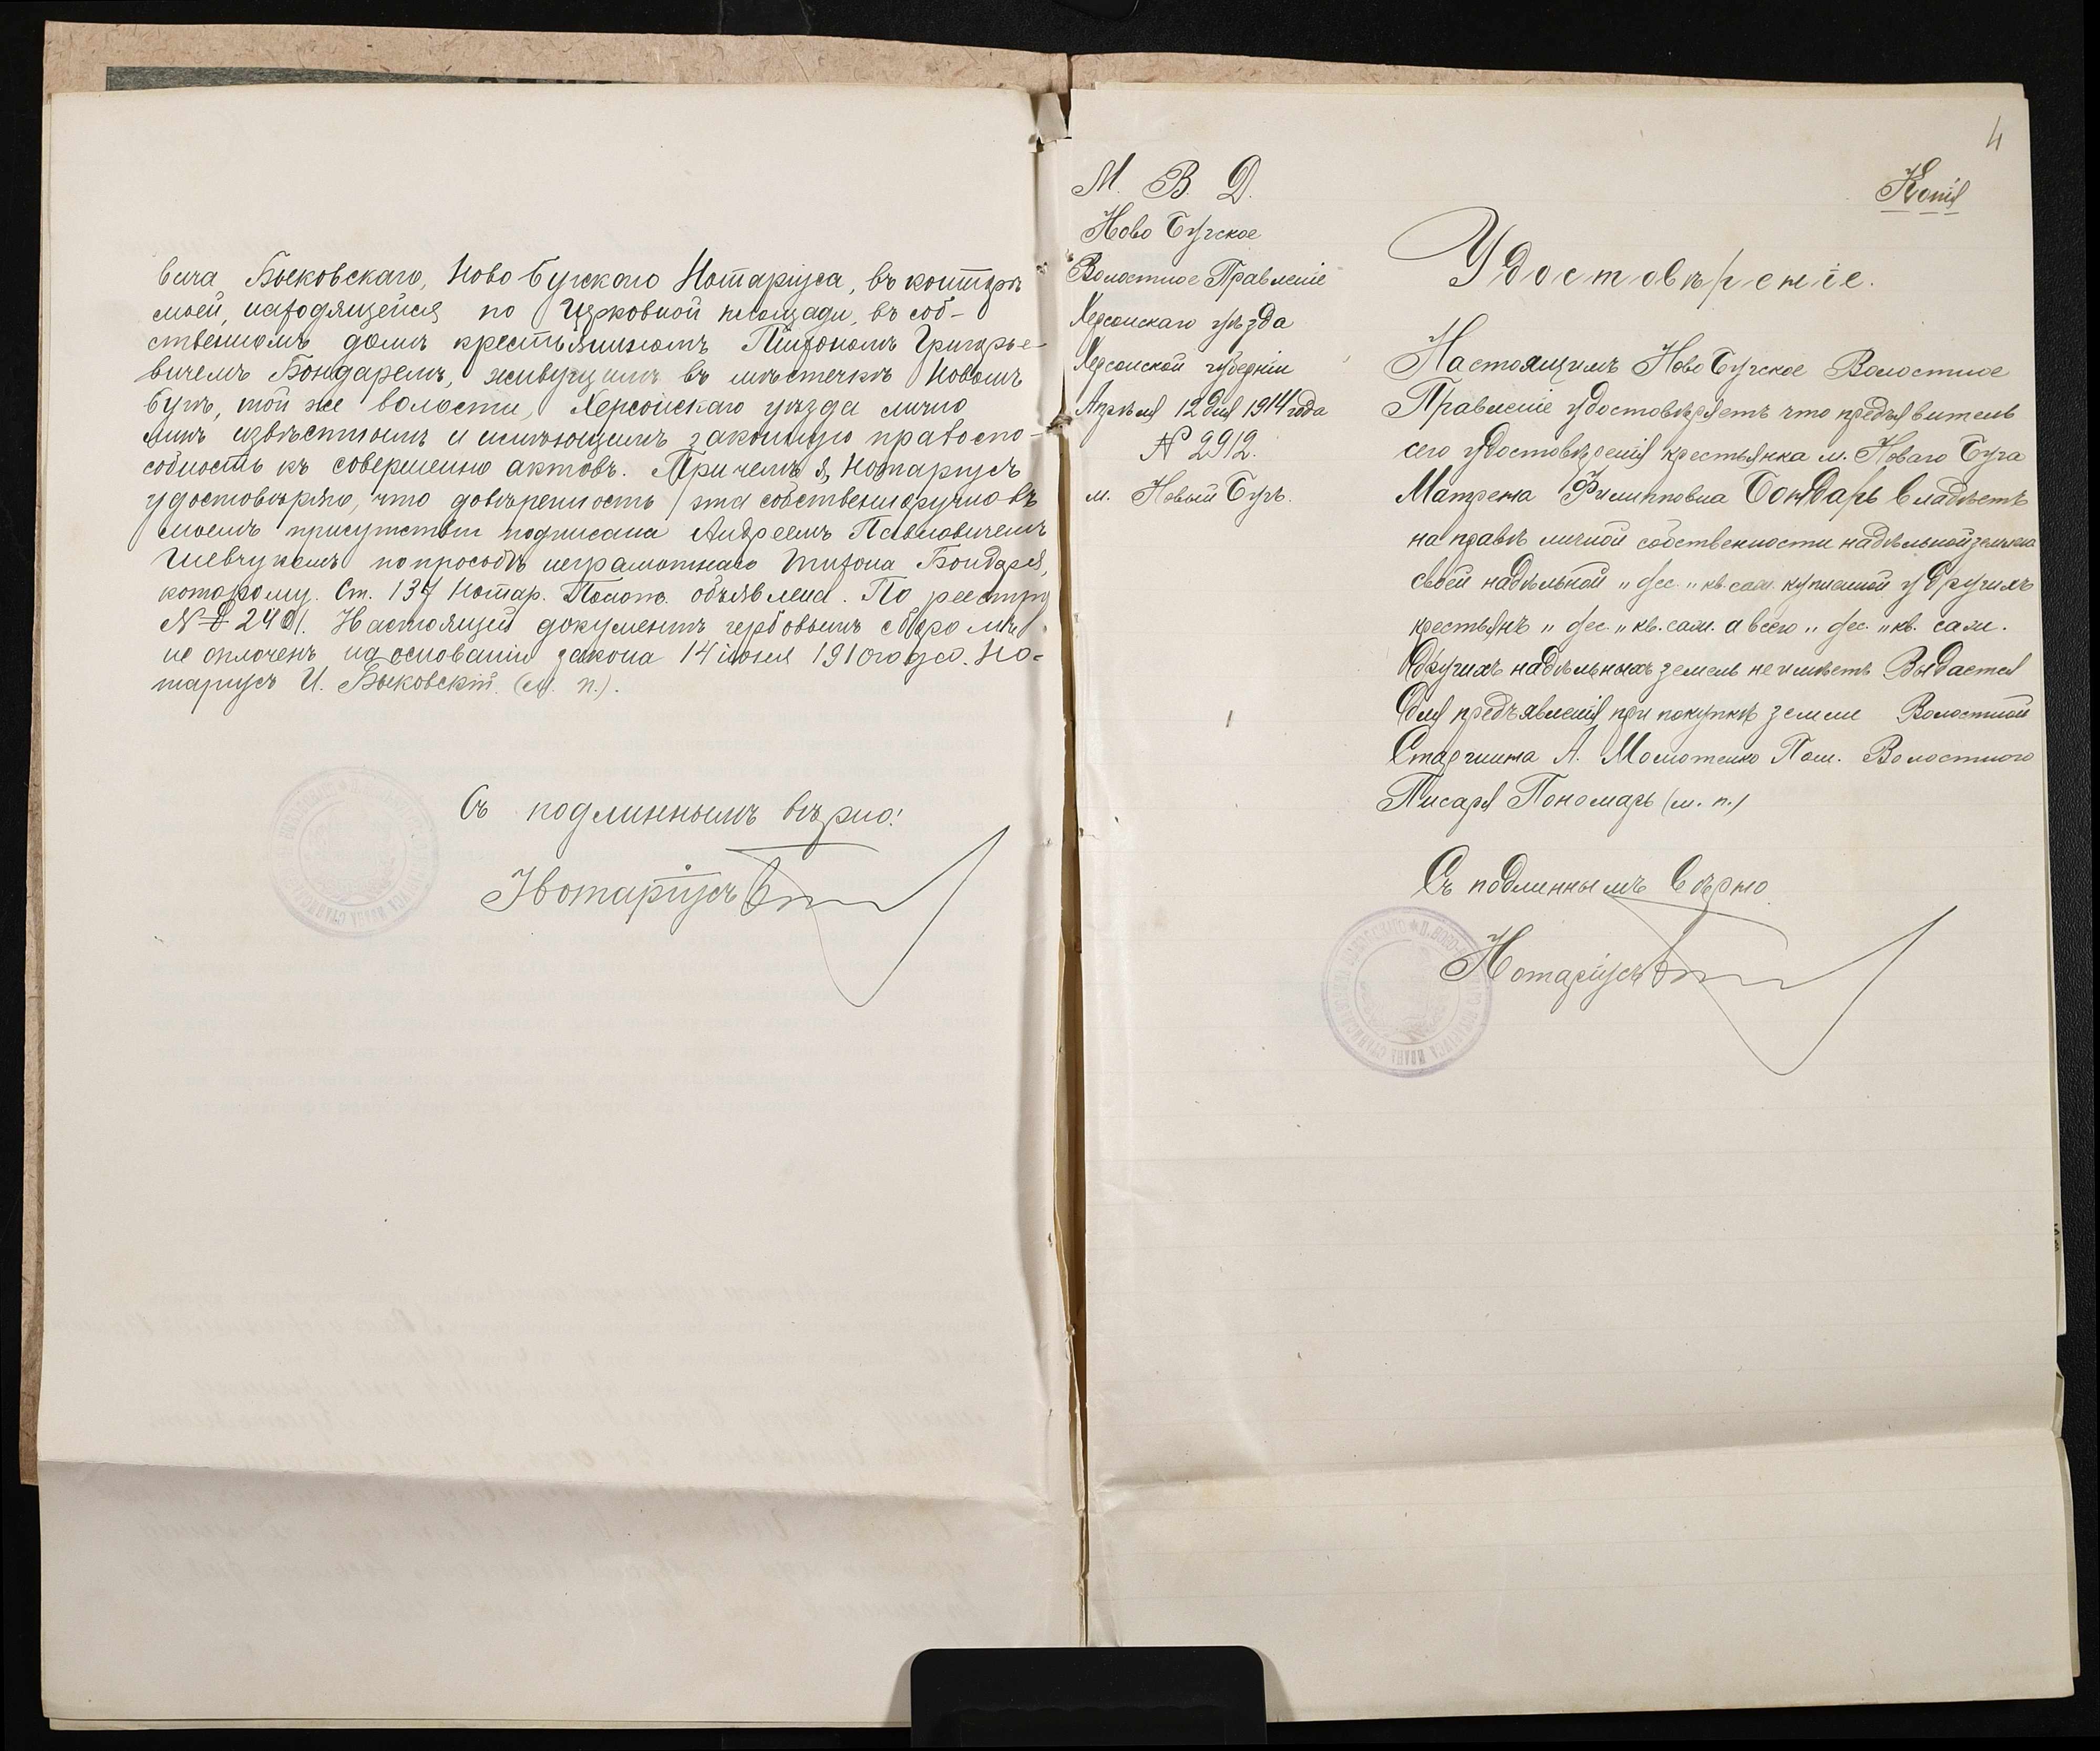 вича Быковскаго, Ново Бугскаго Нотаріуса, въ конторѣ
моей, находящейся по Церковной площади, въ соб-
ственномъ домѣ крестьяниномъ Тихономъ Григорье-
вичемъ Бондаремъ, живущимъ въ мѣстечкѣ Новомъ
Бугѣ, той же волости, Херсонскаго уѣзда лично
мнѣ извѣстнымъ и имѣющимъ законную правоспо-
собность къ совершенію актовъ. Причемъ я, Нотаріусъ
удостовѣряю, что довѣренность эта собственноручно въ
моемъ присутствіи подписана Андреемъ Павловичемъ
Шевчукомъ по просьбѣ неграмотнаго Тихона Бондаря,
которому Ст. 137 Нотар. Полож. объявлена. По реестру
№ 2401. Настоящій документъ гербовымъ сборомъ
не оплоченъ на основаніи закона 14 іюня 1910 года. Но-
таріусъ И. Быковскій. (М. п.).
Съ подлиннымъ вѣрно:
Нотаріусъ
4
Копія
М. В. Д.
Ново Бугское
Волостное Правленіе
Херсонскаго уѣзда
Херсонской губерніи
Апрѣля 12 дня 1914 года
№ 2912.
м. Новый Бугъ.
Удостовѣреніе.
Настоящимъ Ново Бугское Волостное
Правленіе удостовѣряетъ что предъявитель
сего удостовѣренія крестьянка м. Новаго Буга
Матрена Филипповна Бондарь владѣетъ
на правѣ личной собственности надѣльной земли
своей надѣльной „ дес. „ кв. саж. купленной у другихъ
крестьянъ „ дес. „ кв. саж. а всего „ дес. „ кв. саж.
Другихъ надѣльныхъ земель не имѣетъ Выдается
для предъявленія при покупкѣ земли Волостной
Старшина А. Молотенко Пом. Волостного
Писаря Пономарь (м. п.)
Съ подлиннымъ вѣрно
Нотаріусъ